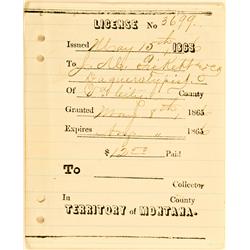 LICENSE No 3699.
Issued May 15th 186
To
Daguerreotypist
Of County
Granted May 8th 1865
Expires 186
$ 12.50 Paid
To
Collector
In County
TERRITORY OF MONTANA.